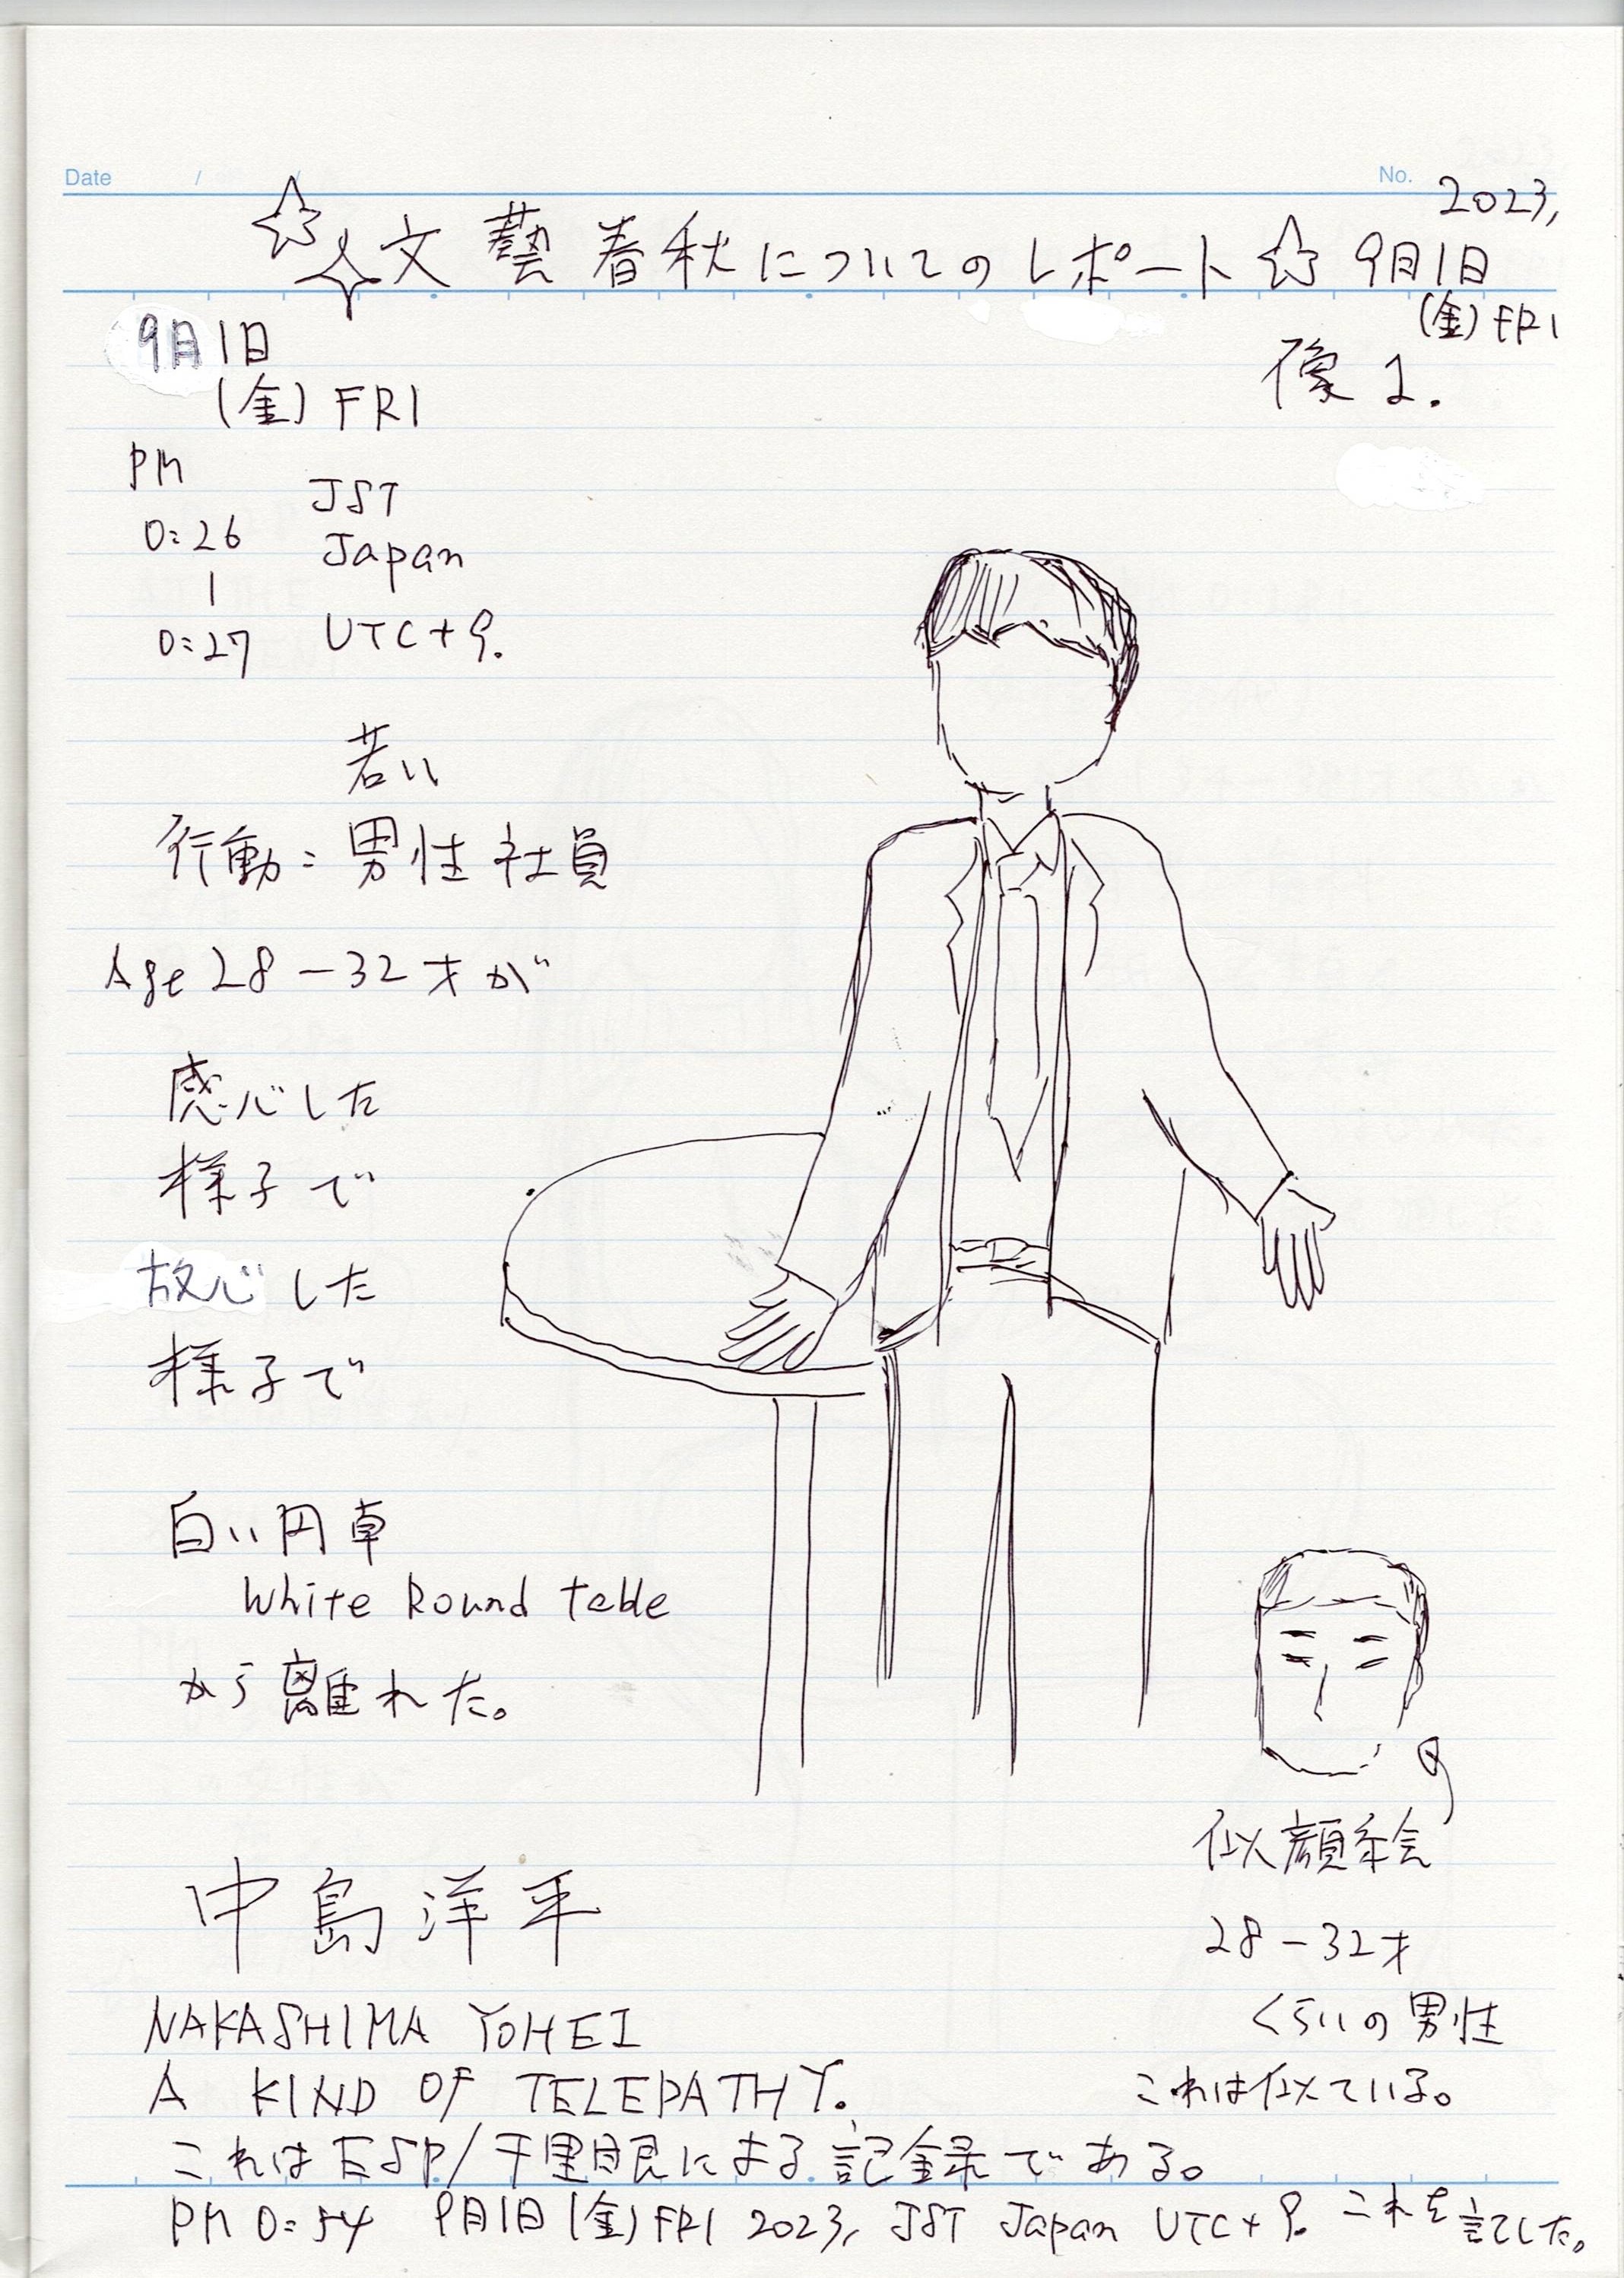 Date / /
No.
2023,
文藝春秋についてのレポート 9月1日
(金) FRI
像 1.
9月1日
(金) FRI
PM
0:26
|
0:27
JST
Japan
UTC+9.
若い
行動:男性社員
Age 28-32才が
感心した
様子で
放心した
様子で
白い円卓
White Round table
から離れた。
似顔絵
28-32才
くらいの男性
これは似ている。
中島洋平
NAKASHIMA YOHEI
A KIND OF TELEPATHY.
これはESP/千里眼による記録である。
PM 0:54 9月1日(金)FRI 2023, JST Japan UTC+9. これを記した。